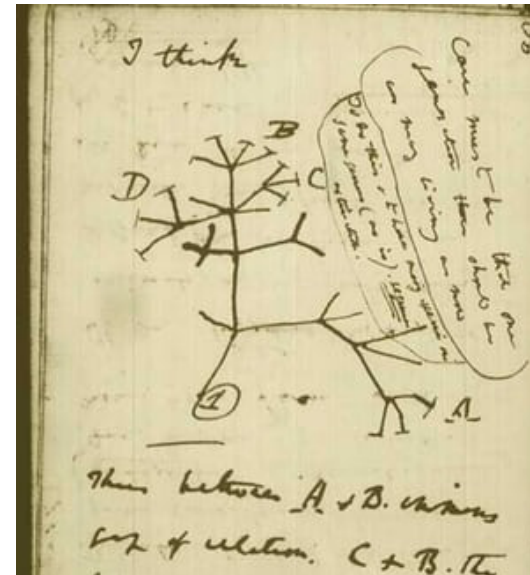 I think
Case must be that one
generation then should be
as many living as now
To do this & to have many species in
same genus (as is). requires
extinction.
B
C
D
A
1
Thus between A & B. immense
gap of relation. C & B. the